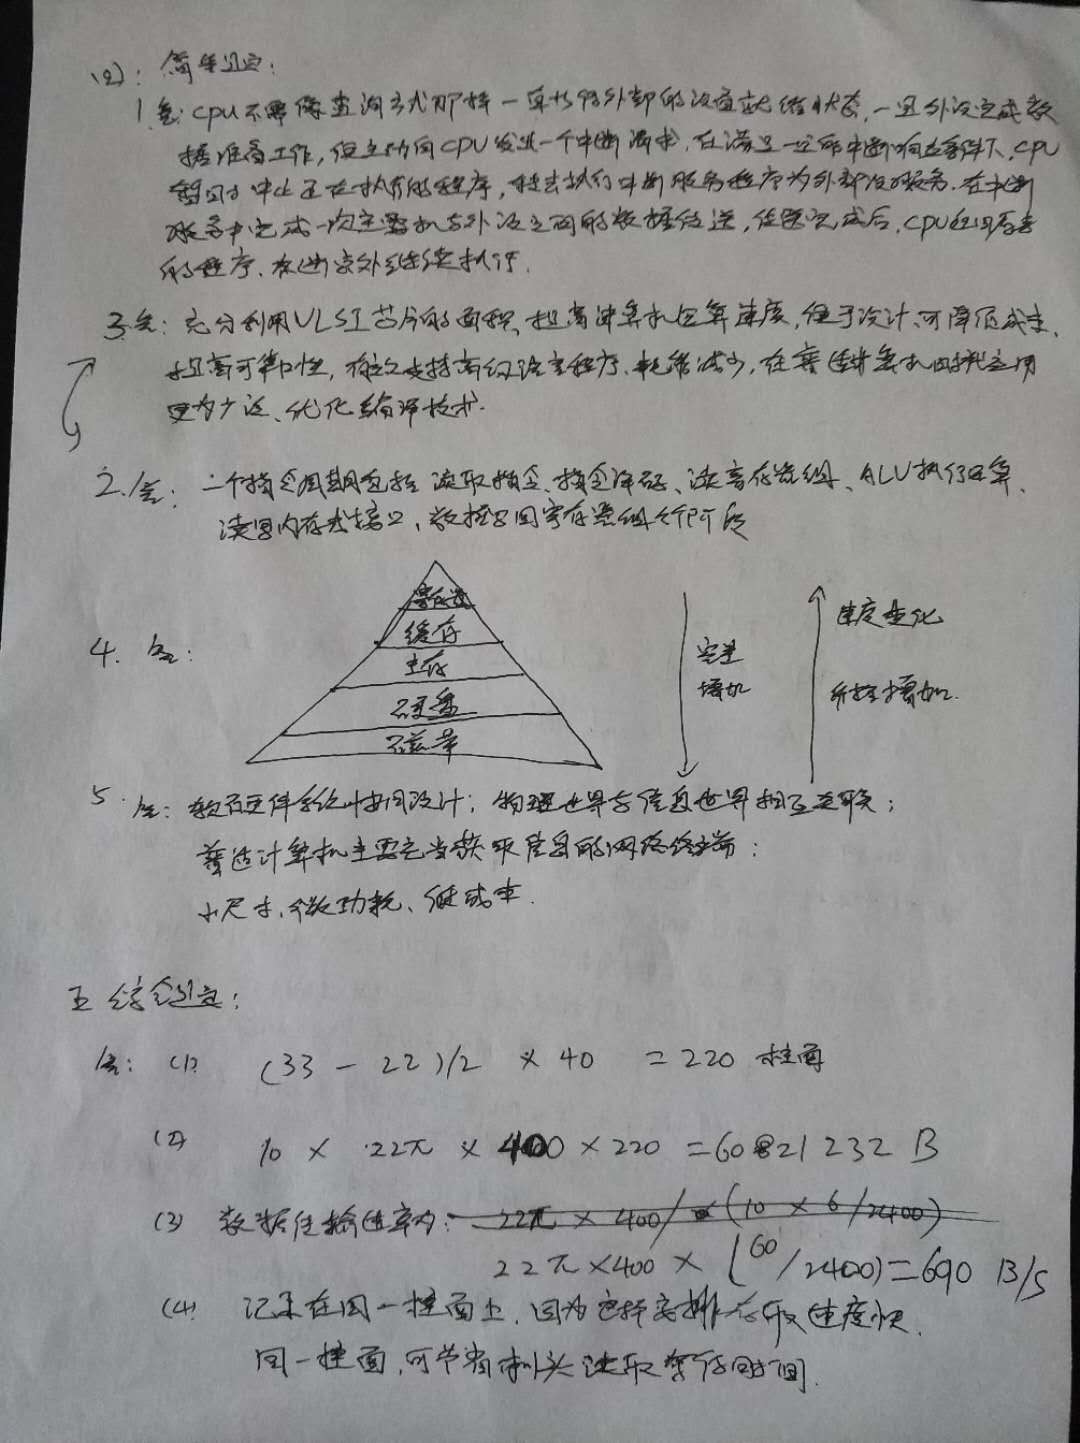 (四): 简单题:
1.答: CPU不需像查询方式那样一直执行外部的设备就绪状态,一旦外设完成数
据准备工作,便主动向CPU发出一个中断请求,在满足一定的中断响应条件下,CPU
暂时中止正在执行的程序,转去执行中断服务程序为外部设备服务.在中断
服务中完成一次主机与外设之间的数据传送,传送完成后,CPU返回原来
的程序.在断点处继续执行.
3.答: 充分利用VLSI芯片的面积、提高计算机运算速度,便于设计,可降低成本,
提高可靠性,有效支持高级语言程序.耗能减少,在普适计算机时代应用
更为广泛、优化编译技术.
2.答: 一个指令周期包括 读取指令、指令译码、读寄存器组、ALU执行运算、
读写内存或接口,数据写回寄存器组6个阶段
4. 答:
寄存器
缓存
主存
硬盘
磁带
容量
增加
速度变化
价格增加.
5. 答: 软硬件系统协同设计; 物理世界与信息世界相互关联;
普适计算机主要充当获取信息的网络终端;
小尺寸、微功耗、低成本.
五 综合题:
答: (1) (33 - 22)/2 × 40 = 220 柱面
(2) 10 × 22π × 400 × 220 = 60821232 B
(3) 数据传输速率为: 22π × 400/(10 × 6/2400)
22π×400 × (60/2400)=690 B/S
(4) 记录在同一柱面上.因为这样安排存取速度快.
同一柱面,可节省机头读取等待时间.